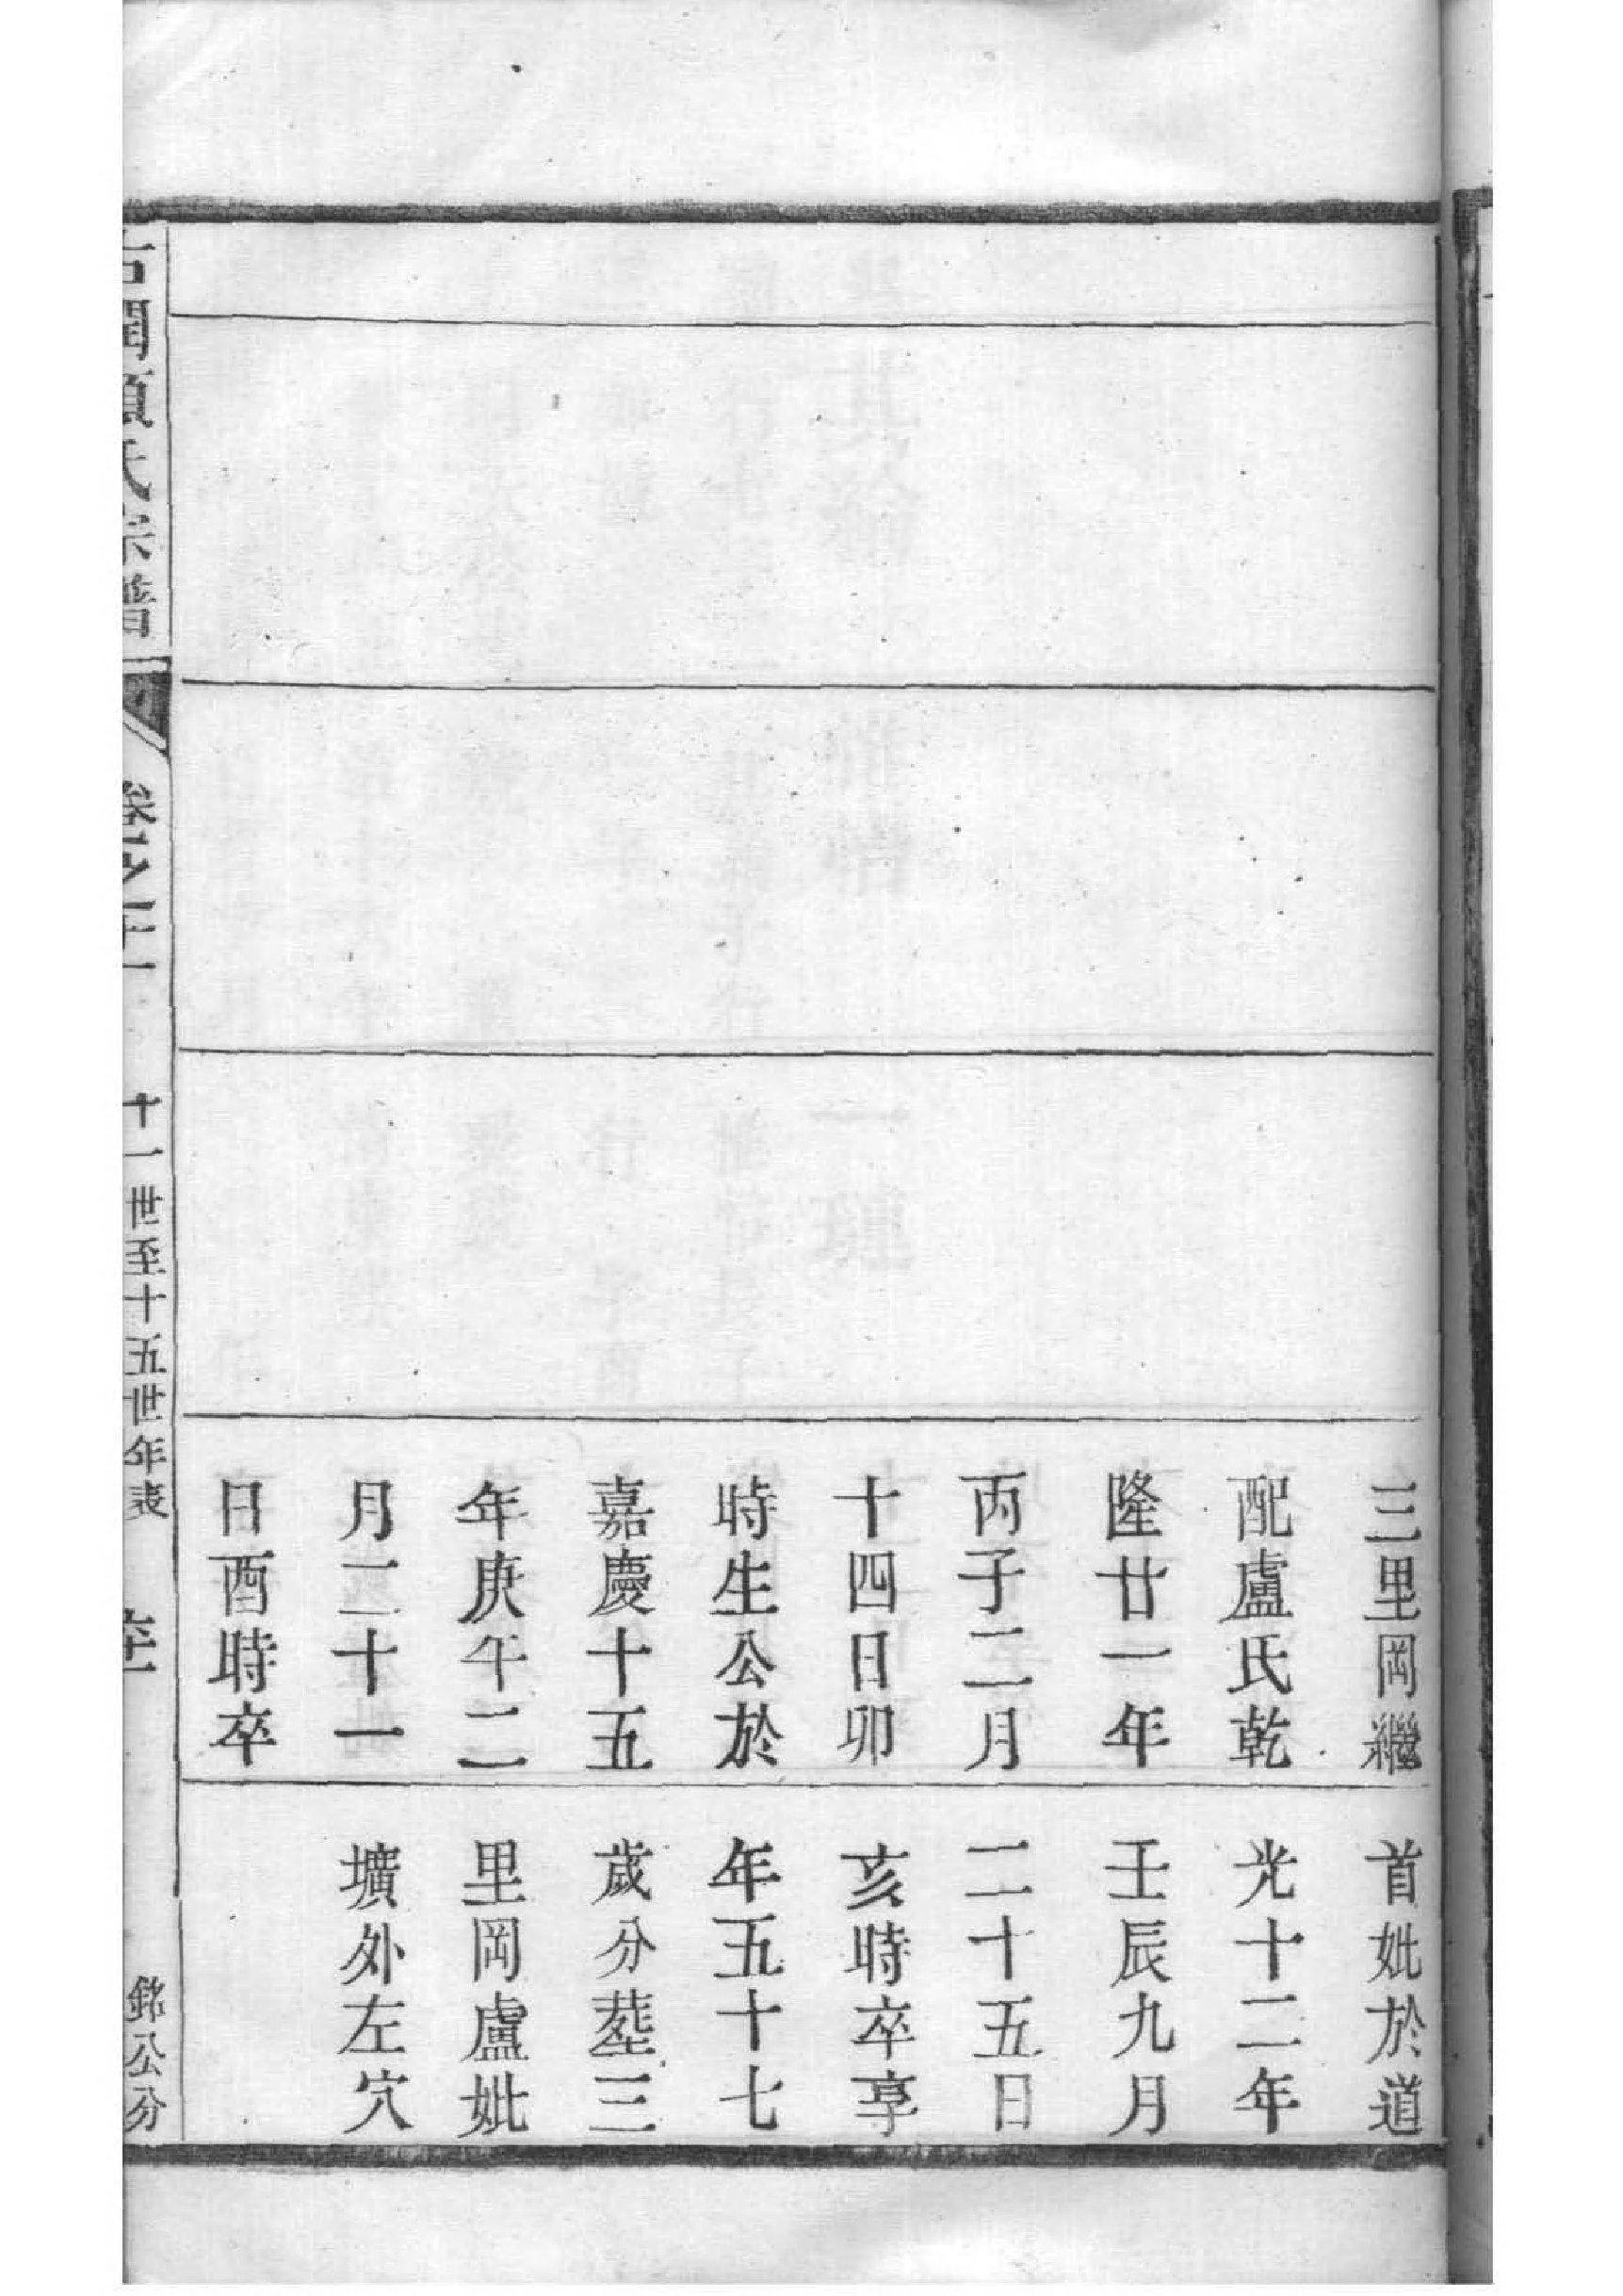 三里岡繼
配盧氏乾
隆廿一年
丙子二月
十四日卯
時生公於
嘉慶十五
年庚午二
月二十一
日酉時卒
首妣於道
光十二年
壬辰九月
二十五日
亥時卒享
年五十七
歲分塟三
里岡盧妣
壙外左穴
氏宗譜
十一世至十五世年表
銘公分